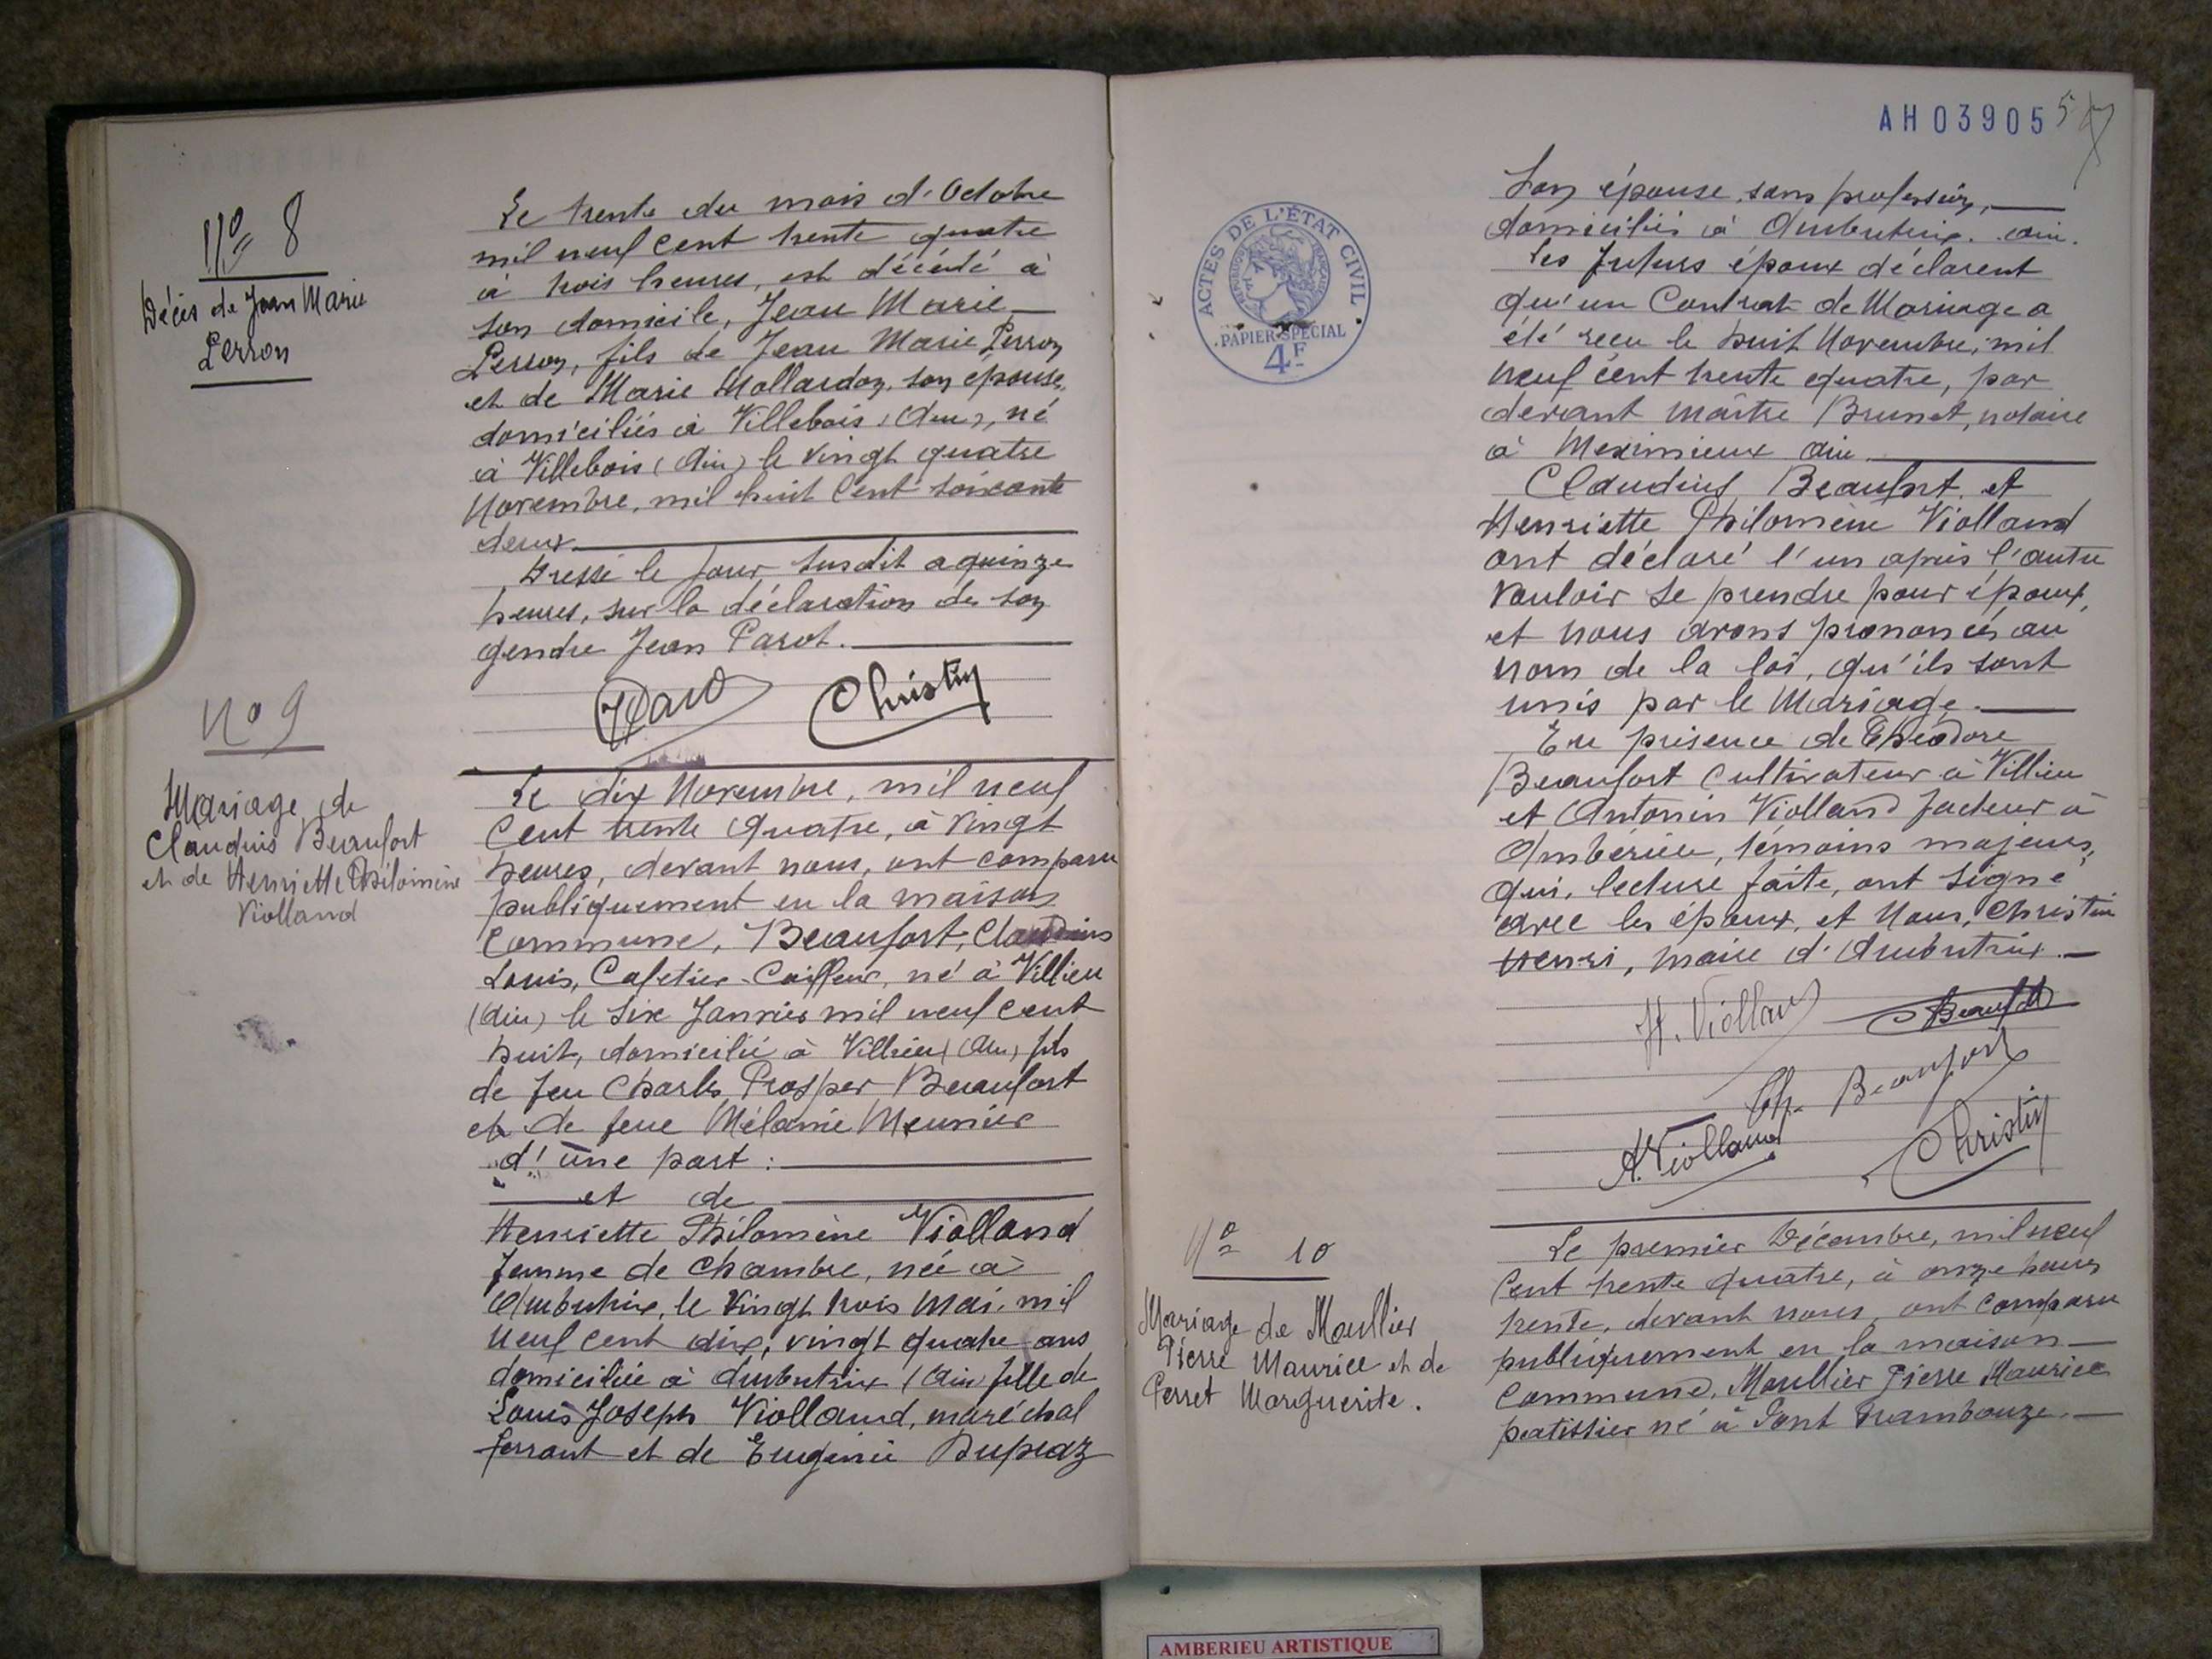 N° 8
Décès de Jean Marie
Perron
Le trente du mois d'Octobre
mil neuf cent trente quatre
à trois heures, est décédé à
son domicile, Jean Marie
Perron, fils de Jean Marie Perron
et de Marie Mollardon, son épouse,
domiciliés à Villebois (Ain), né
à Villebois (Ain) le vingt quatre
Novembre, mil huit cent soixante
deux
Dressé le jour susdit a quinze
heures, sur la déclaration de son
gendre Jean Parot.
Christin
N° 9
Mariage de
Claudius Beaufort
et de Henriette Philomène
Violland
Le dix Novembre, mil neuf
cent trente quatre, à vingt
heures, devant nous, ont comparu
publiquement en la maison
commune, Beaufort, Claudius
Louis, Cafetier-Coiffeur, né à Villieu
(Ain) le six Janvier mil neuf cent
huit, domicilié à Villieu (Ain) fils
de feu Charles Prosper Beaufort
et de feue Mélanie Meunier
d'une part :
et de
Henriette Philomène Violland
femme de chambre, née à
Ambutrix, le vingt trois Mai, mil
neuf cent dix, vingt quatre ans
domiciliée à Ambutrix (Ain) fille de
Louis Joseph Violland, maréchal
ferrant et de Eugénie Dupraz
AH03905
5
ACTES DE L'ÉTAT CIVIL
RÉPUBLIQUE FRANÇAISE
PAPIER SPÉCIAL
4F
Son épouse, sans profession,
domiciliés à Ambutrix. Ain.
Les futurs époux déclarent
qu'un Contrat de Mariage a
été reçu le huit Novembre, mil
neuf cent trente quatre, par
devant Maître Brunet, notaire
à Meximieux Ain
Claudius Beaufort et
Henriette Philomène Violland
ont déclaré l'un après l'autre
vouloir se prendre pour époux,
et nous avons prononcés au
nom de la loi, qu'ils sont
unis par le Mariage.
En présence de Théodore
Beaufort cultivateur à Villieu
et Antonin Violland facteur à
Ambérieu, témoins majeurs,
qui, lecture faite, ont signé
avec les époux, et Nous, Christin
Henri, maire d'Ambutrix.
H. Violland
Beaufort
Th. Beaufort
A. Violland
Christin
N° 10
Mariage de Moullier
Pierre Maurice et de
Perret Marguerite.
Le premier Décembre, mil neuf
cent trente quatre, à onze heures
trente, devant nous, ont comparu
publiquement en la maison
commune, Moullier Pierre Maurice
patissier né à Pont Trambouze.
AMBERIEU ARTISTIQUE